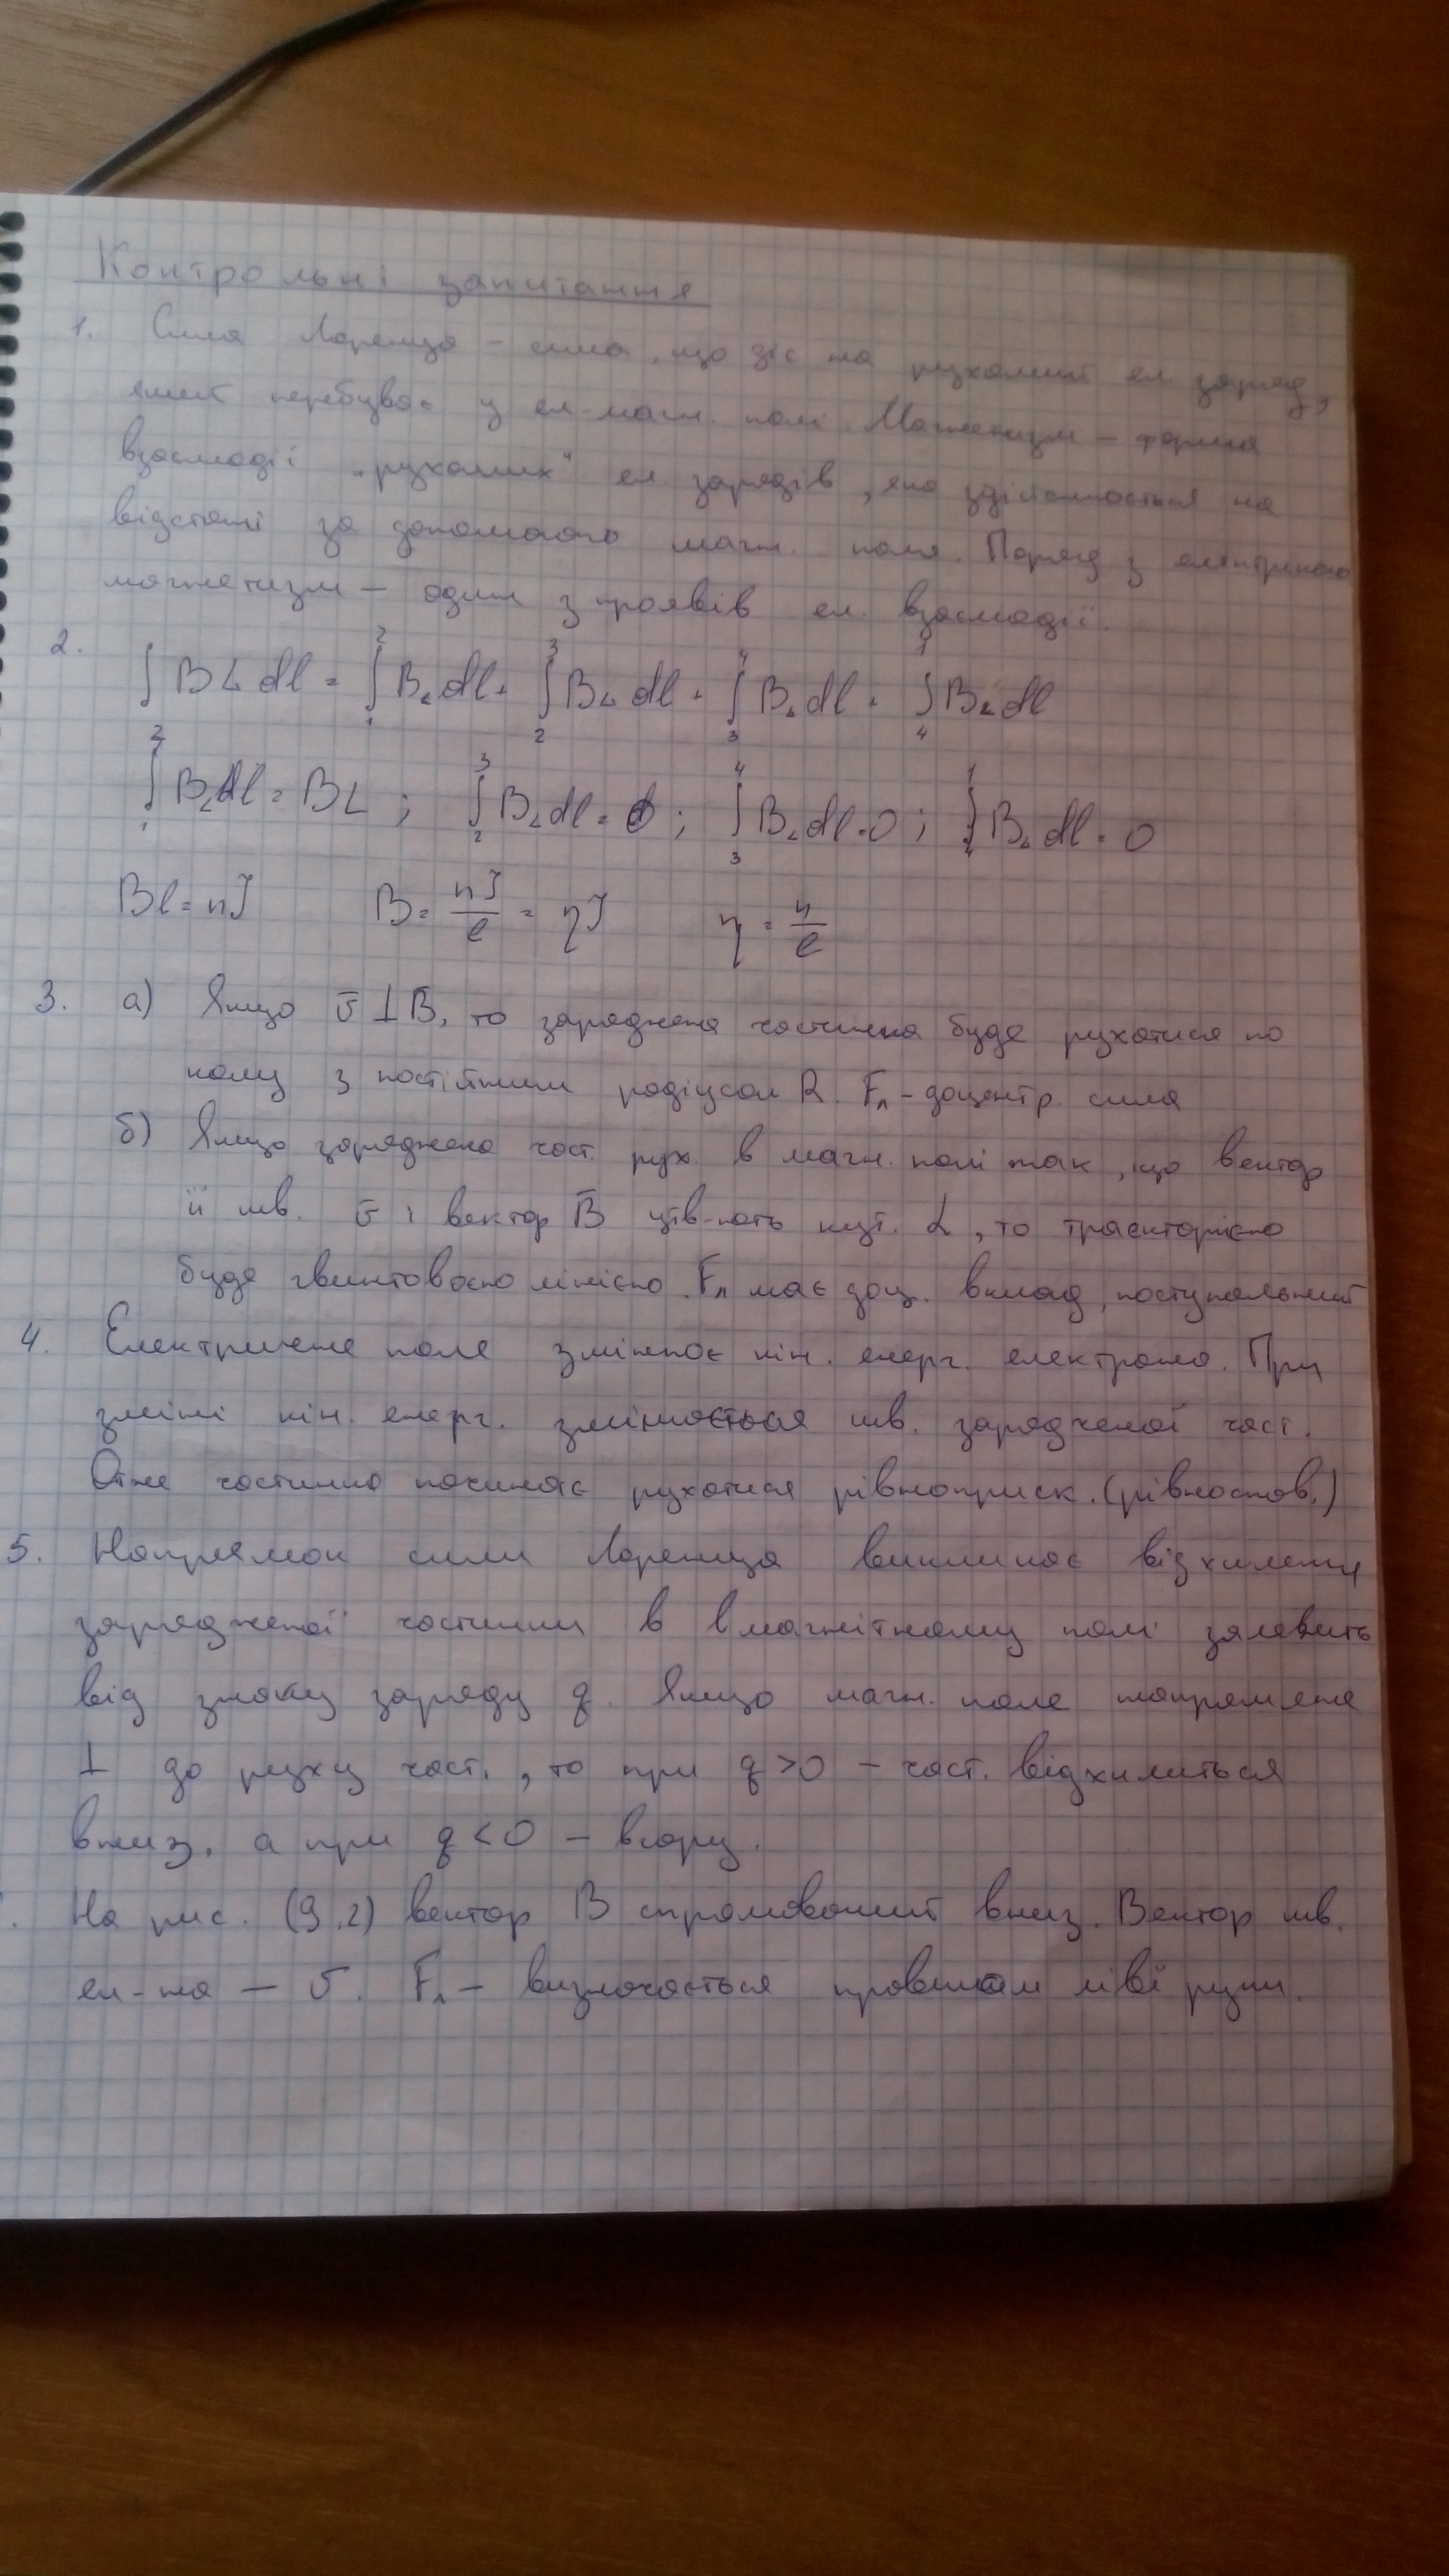 Контрольні запитання
1. Сила Лоренца – сила, що діє на рухомий ел. заряд,
який перебуває у ел-магн. полі. Магнетизм – форма
взаємодії „рухомих“ ел. зарядів, яка здійснюється на
відстані за допомогою магн. поля. Поряд з електрикою
магнетизм – один з проявів ел. взаємодії.
2. ∫ BL dl = ∫₁² BL dl + ∫₂³ BL dl + ∫₃⁴ BL dl + ∫₄¹ BL dl
∫₁² BL dl = BL ; ∫₂³ BL dl = 0 ; ∫₃⁴ BL dl = 0 ; ∫₄¹ BL dl = 0
Bl = nJ B = nJ/l = ηJ η = n/l
3. а) Якщо v̄ ⊥ B̄, то заряджена частинка буде рухатися по
колу з постійним радіусом R. Fл – доцентр. сила
б) Якщо заряджена част. рух. в магн. полі так, що вектор
її шв. v̄ і вектор B̄ утв-ють кут. α, то траєкторією
буде гвинтовою лінією. Fл має доц. вклад, поступальний
4. Електричне поле змінює кін. енерг. електрона. При
зміні кін. енерг. змінюється шв. зарядженої част.
Отже частинка починає рухатися рівноприск. (рівноспов.)
5. Напрямок сили Лоренца викликає відхилення
зарядженої частинки в магнітному полі залежить
від знаку заряду q. Якщо магн. поле напрямлене
⊥ до руху част., то при q > 0 – част. відхилиться
вниз, а при q < 0 – вгору.
На рис. (9.2) вектор B спрямований вниз. Вектор шв.
ел-на – v. Fл – визначається правилом лівої руки.